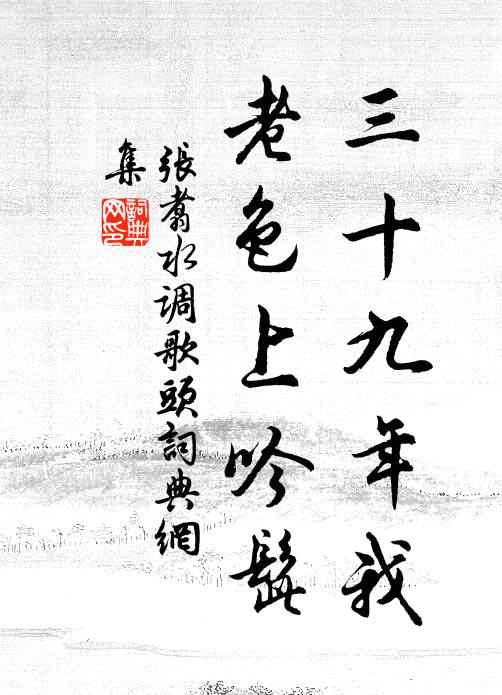 三十九年我
老色上吟髭
張翥水调歌頭詞典網
集
詞典
网印